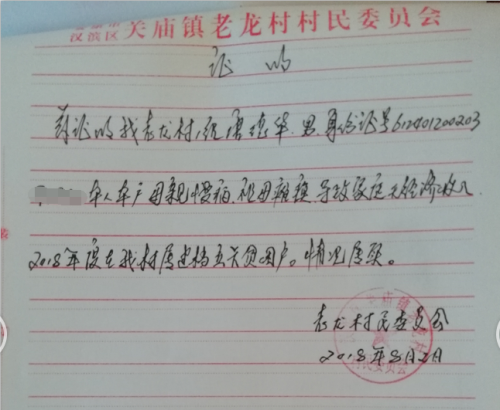 汉滨区 关庙镇老龙村村民委员会
证明
兹证明我老龙村1组唐德华 男 身份证号612401200203
本人本户母亲患病、祖母瘫痪、导致家庭无经济收入
2018年度在我村属建档立卡贫困户。情况属实。
老龙村民委员会
2018年8月2日